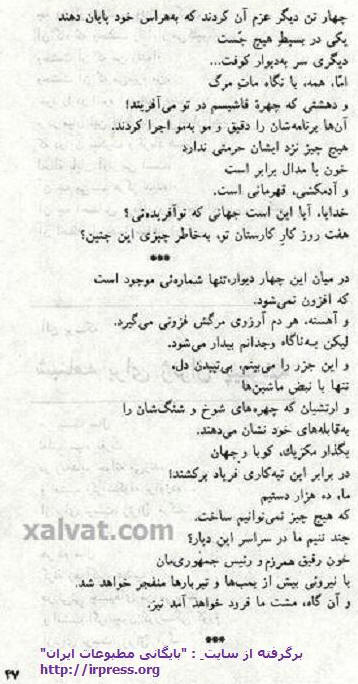 چهار تن دیگر عزم آن کردند که به‌هراس خود پایان دهند
یکی در بسیط هیچ جَست
دیگری سر به‌دیوار کوفت...
امّا، همه، با نگاه ماتِ مرگ
و دهشتی که چهرهٔ فاشیسم در تو می‌آفریند!
آن‌ها برنامه‌شان را دقیق و مو به‌مو اجرا کردند.
هیچ چیز نزد ایشان حرمتی ندارد
خون با مدال برابر است
و آدمکشی، قهرمانی است.
خدایا، آیا این است جهانی که توآفریده‌ئی؟
هفت روز کارِ کارستان تو، به‌خاطر چیزی این چنین؟
***
در میان این چهار دیوار،تنها شماره‌ئی موجود است
که افزون نمی‌شود.
و آهسته، هر دم آرزوی مرگش فزونی می‌گیرد.
لیکن به‌ناگاه وجدانم بیدار می‌شود.
و این جزر را می‌بینم، بی‌تپیدن دل،
تنها با نبض ماشین‌ها
و ارتشیان که چهره‌های شوخ و شنگ‌شان را
به‌قابله‌های خود نشان می‌دهند.
بگذار مکزیک، کوبا و جهان
در برابر این تبه‌کاری فریاد برکشند!
ما، ده هزار دستیم
که هیچ چیز نمی‌توانیم ساخت.
چند تنیم ما در سراسر این دیار؟
خون رفیق همرزم و رئیس جمهوری‌مان
با نیروئی بیش از بمب‌ها و تیربارها منفجر خواهد شد.
و آن گاه، مشت ما فرود خواهد آمد نیز.
***
xalvat.com
برگرفته از سایت : "بایگانی مطبوعات ایران"
http://irpress.org
۴۷